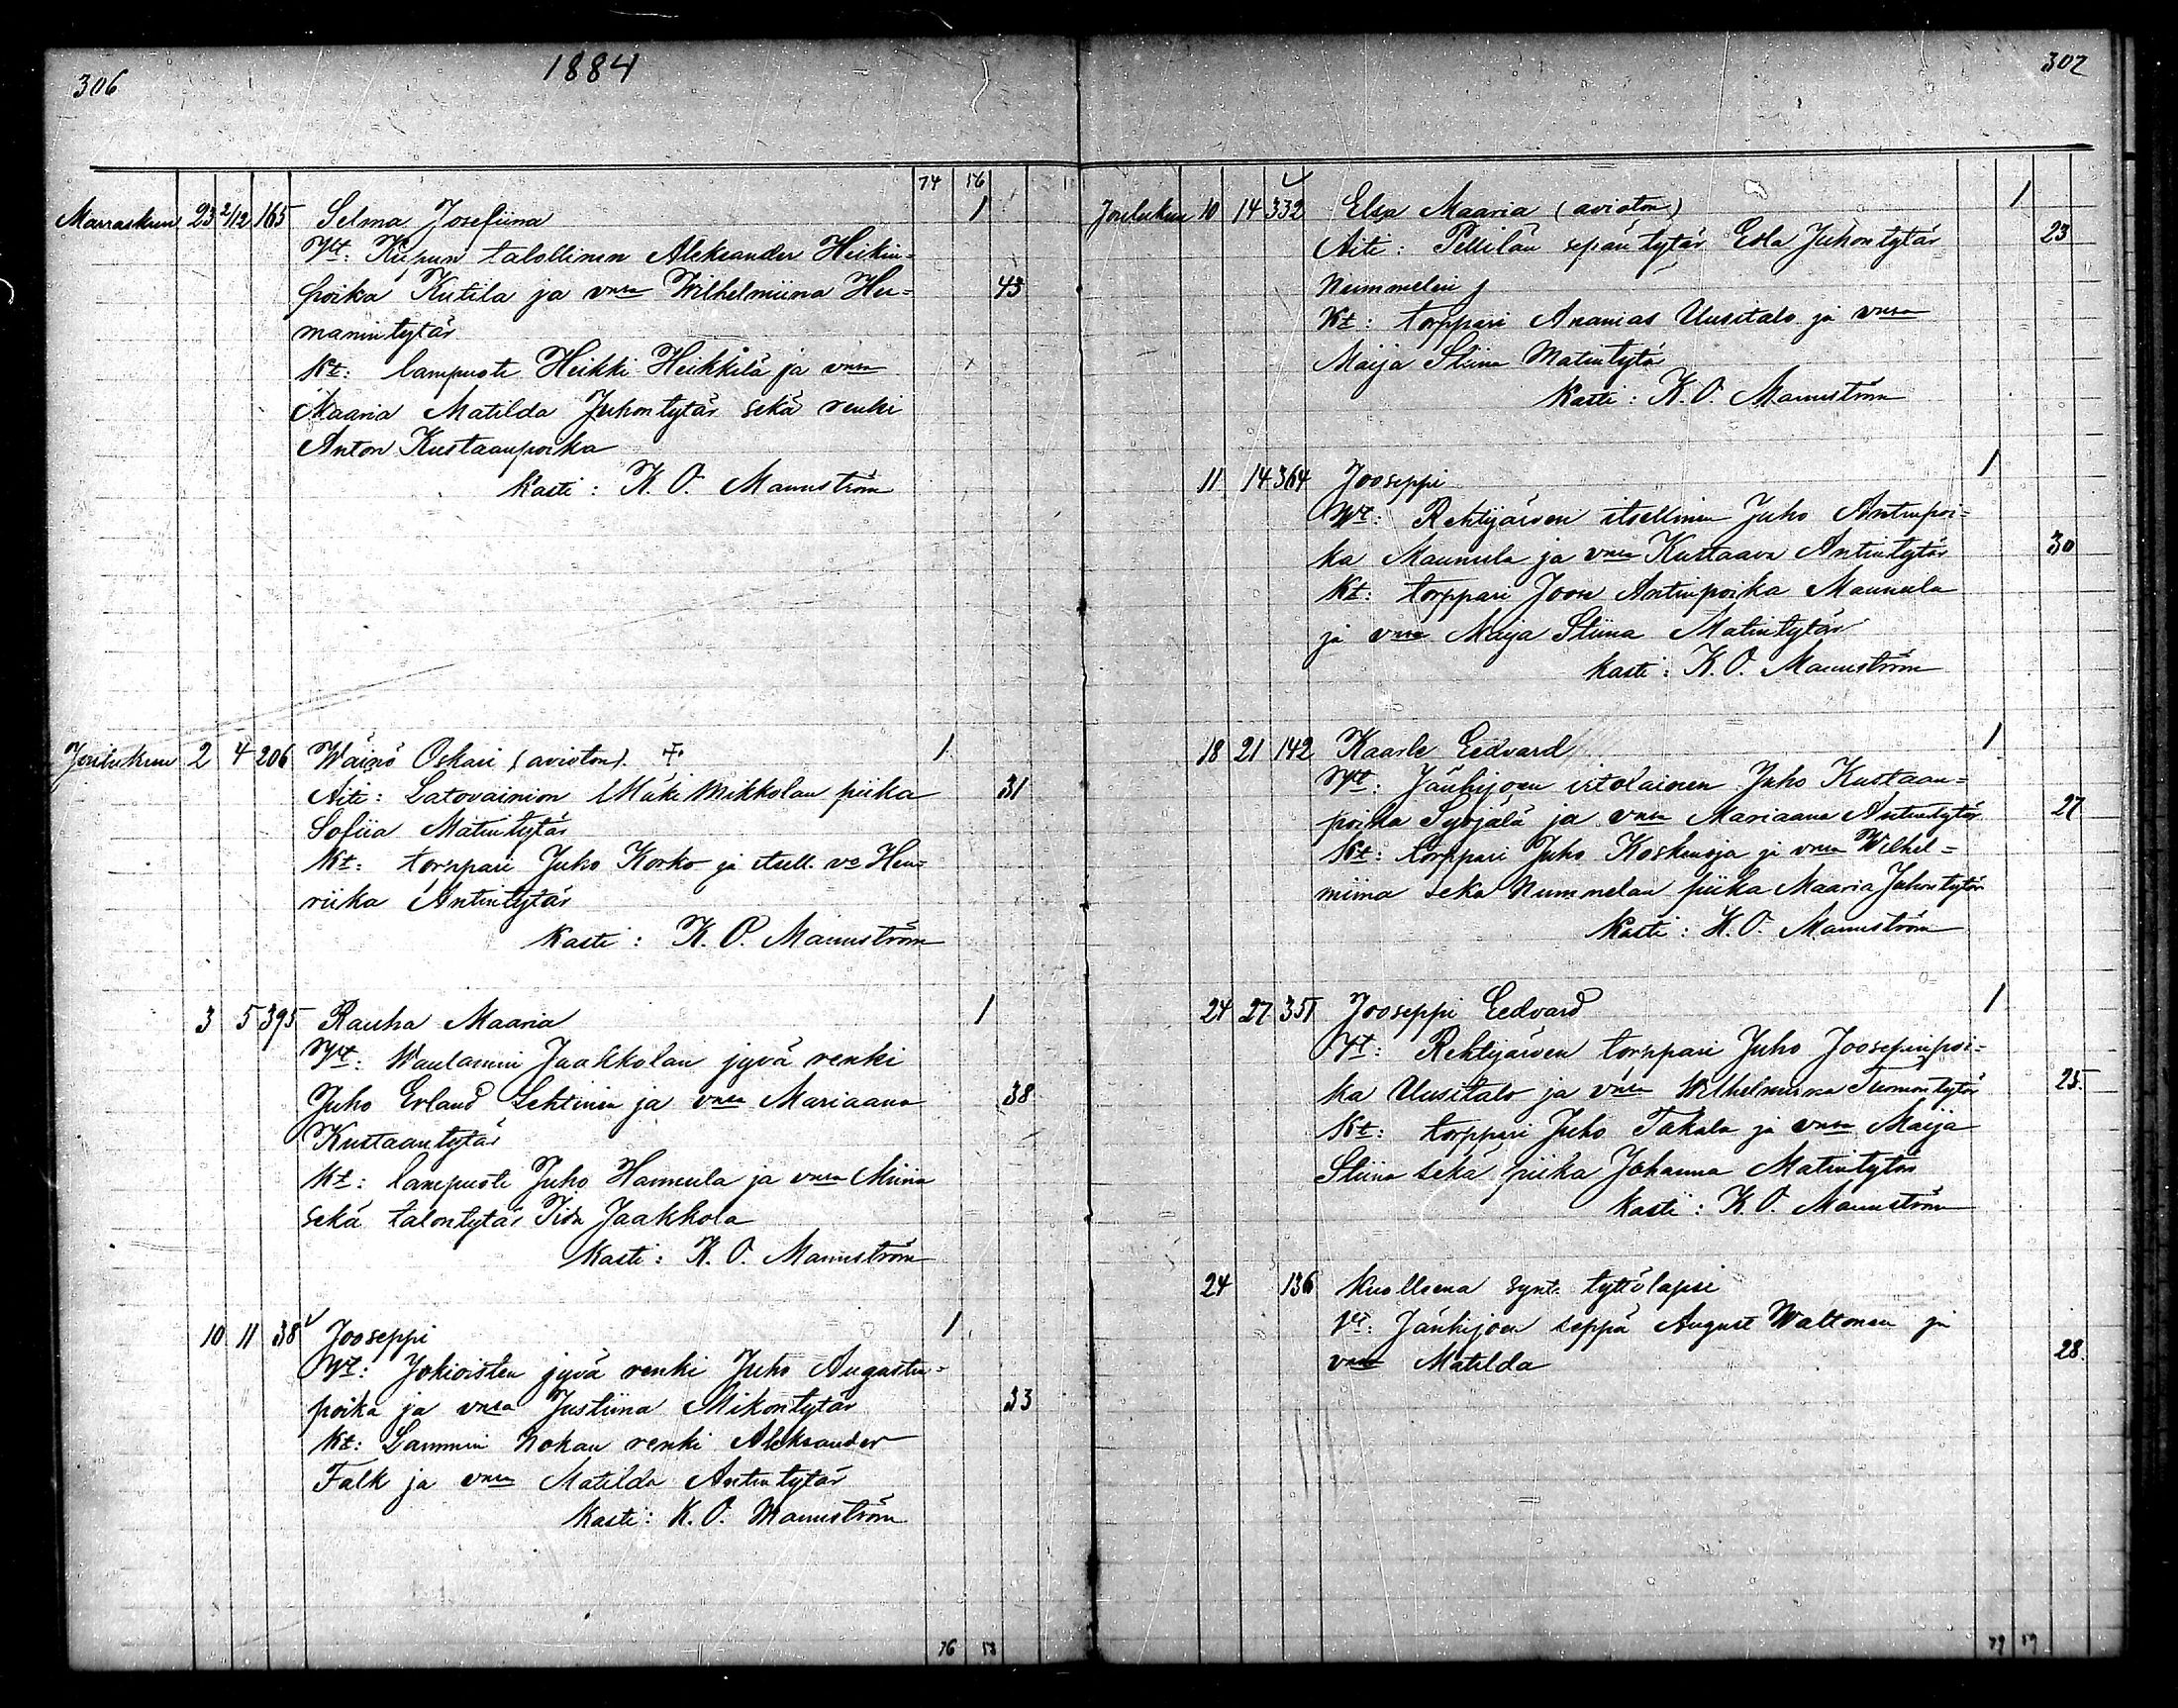 306
1884
74 56
Marraskuun 23 2/12 165 Selma Josefiina 1
Vt: talollinen Aleksander Heikin-
poika Kutila ja vmsa Wilhelmiina Her- 43
manintytär
Kt: lampuoti Heikki Heikkilä ja vmsa
Maaria Matilda Juhontytär sekä renki
Anton Kustaanpoika
Kasti: K. O. Mannström
Joulukuun 2 4 206 Wäinö Oskari (avioton) 1
Äiti: Latovainion Mäki Mikkolan piika 31
Sofiia Matintytär
Kt: torppari Juho Korko ja itsell. vo Hen-
riika Antintytär
Kasti: K. O. Mannström
3 5 395 Rauha Maaria 1
Vt: Jaakkolan jyvä renki
Juho Erland Lehtinen ja vmsa Mariaana 38
Kustaantytär
Kt: lampuoti Juho Hannula ja vmsa Miina
sekä talontytär Iida Jaakkola
Kasti: K. O. Mannström
10 11 38 Jooseppi 1
Vt: Jokioisten jyvä renki Juho Augustin-
poika ja vmsa Justiina Mikontytär 33
Kt: Lammin Nokan renki Aleksander
Falk ja vmsa Matilda Antintytär
Kasti: K. O. Mannström
76 58
307
Joulukuun 10 14 332 Elsa Maaria (avioton) 1
Äiti: Pellilän sepän tytär Edla Juhontytär 23
Nummelin
Kt: torppari Ananias Uusitalo ja vmsa
Maija Stiina Matintytär
Kasti: K. O. Mannström
11 14 364 Jooseppi 1
Vt: Rehtijärven itsellinen Juho Antinpoi-
ka Maunula ja vmsa Kustaava Antintytär 30
Kt: torppari Joose Antinpoika Maunula
ja vmsa Maija Stiina Matintytär
Kasti: K. O. Mannström
18 21 142 Kaarle Eedvard 1
Vt: Jänhijoen Juho Kustaan-
poika Syrjälä ja vmsa Mariaana Antintytär 27
Kt: torppari Juho Koskenoja ja vmsa Wilhel-
miina sekä Nummelan piika Maaria Juhontytär
Kasti: K. O. Mannström
24 27 351 Jooseppi Eedvard 1
Vt: Rehtijärven torppari Juho Joosepinpoi-
ka Uusitalo ja vmsa Wilhelmiina Tuomontytär 25
Kt: torppari Juho Takala ja vmsa Maija
Stiina sekä piika Johanna Matintytär
Kasti: K. O. Mannström
24 136 Kuolleena synt. tyttölapsi
Vt: Jänhijoen seppä August Waltonen ja
vmsa Matilda 28
79 59